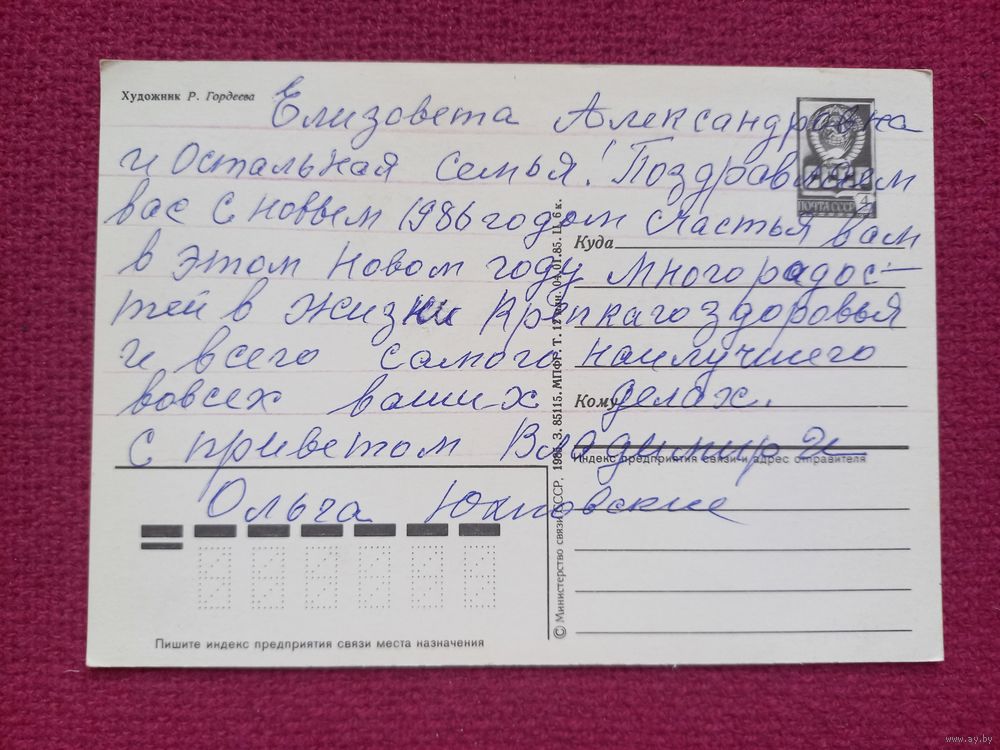 Художник Р. Гордеева
Елизовета Александровна
и остальная семья! Поздравляем
вас с новым 1986 годом счастья вам
в этом новом году много радос-
тей в жизни крепкаго здоровья
и всего самого наилучшего
вовсех ваших делах.
с приветом Владимир и
Ольга
ПОЧТА СССР
4
Куда
Кому
Индекс предприятия связи и адрес отправителя
Пишите индекс предприятия связи места назначения
© Министерство связи СССР, 1985. З. 85115. МПФГ. Т. 12 млн. 04.01.85. Ц. 6 к.
www.ay.by